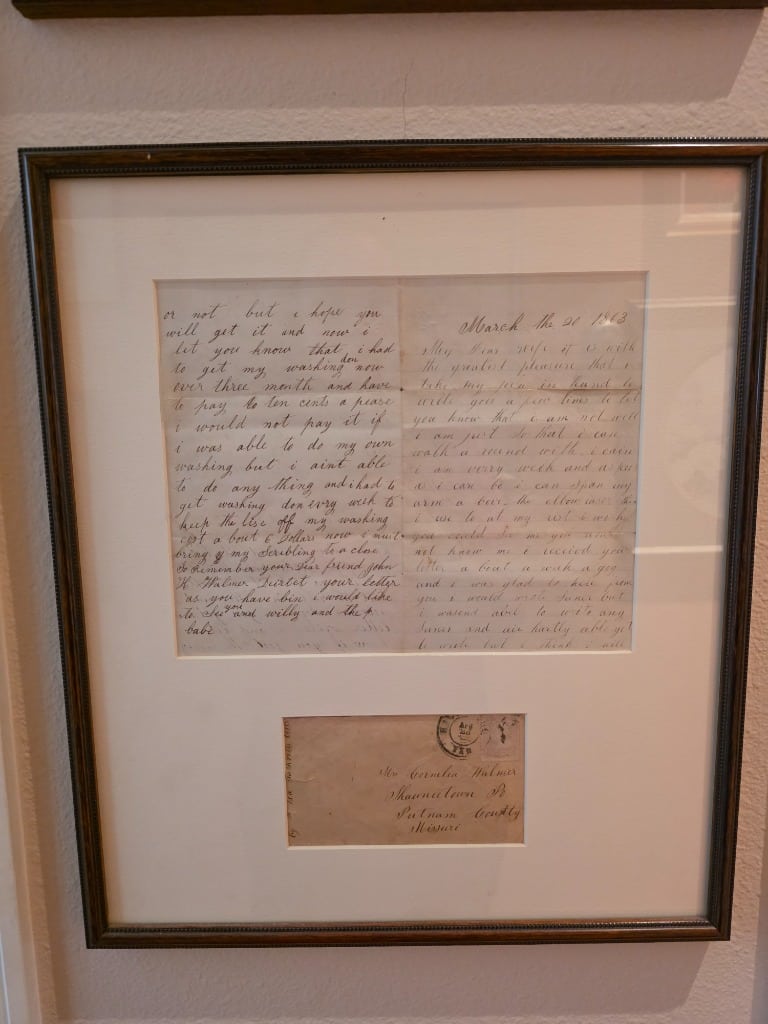 or not but i hope you
will get it and now i
let you know that i had
to get my washing don now
ever three month and have
to pay to ten cents a pease
i would not pay it if
i was able to do my own
washing but i aint able
to do any thing and i had to
get washing don evry week to
keep the lise off my washing
cost a bout 6 Dollars now i must
bring y my Scribling to a close
So Remember your Dear friend John
H. Walmer Quirlet your letter
as you have bin i would like
to See you and willy and the
babe
March the 20 1863
My Dear wife it is with
the greatest pleasure that i
take my pen in hand to
write you a few lines to let
you know that i am not well
i am just So that i can
walk a round with a cain
i am verry week and as
as i can be i can span my
arm a bove the elbow
i use to at my rist i wish
you could See me you
not know me i recived you
letter a bout a week a gog
and i was glad to here from
you i would wrote Suner but
i wasend abel to write any
Suner and air hartly able yet
to wrote but i think i will
Mrs Cornelia Walmer
Shawneetown P
Putnam County
Missuri